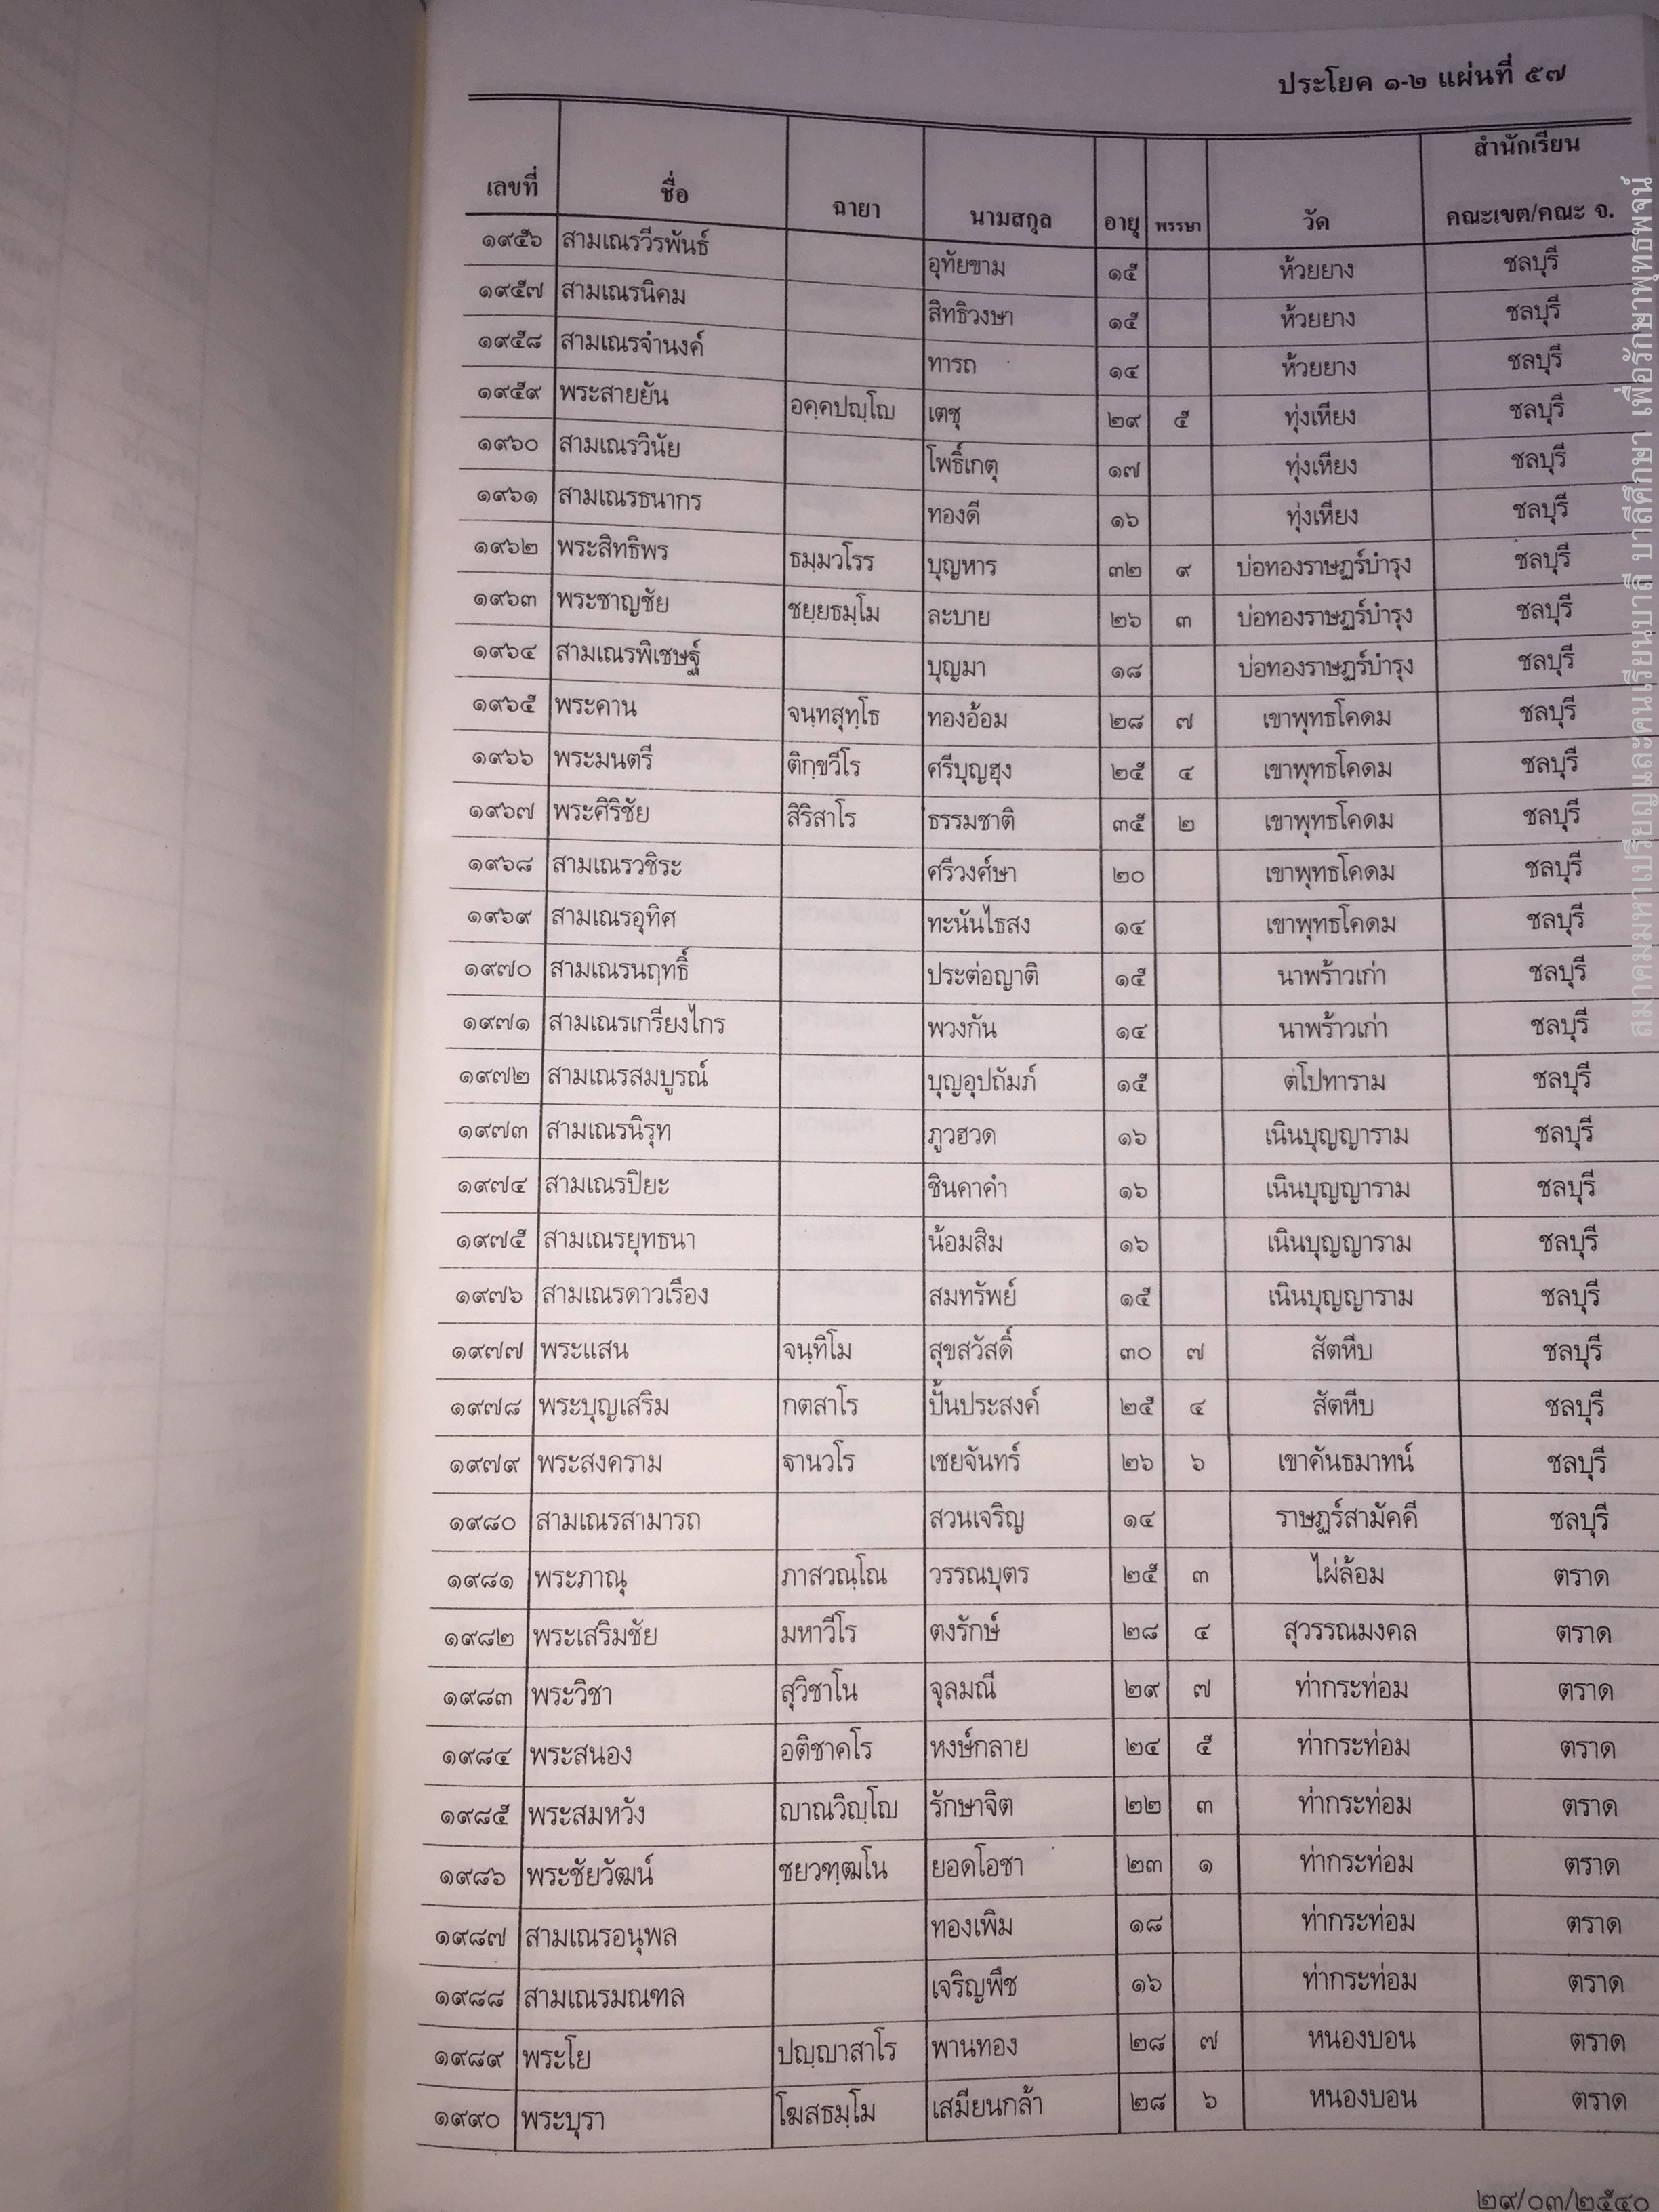 ประโยค ๑-๒ แผ่นที่ ๕๗
เลขที่ ชื่อ ฉายา นามสกุล อายุ พรรษา วัด สำนักเรียน คณะเขต/คณะ จ.
๑๙๕๖ สามเณรวีรพันธ์ อุทัยขาม ๑๕ ห้วยยาง ชลบุรี
๑๙๕๗ สามเณรนิคม สิทธิวงษา ๑๕ ห้วยยาง ชลบุรี
๑๙๕๘ สามเณรจำนงค์ ทารถ ๑๔ ห้วยยาง ชลบุรี
๑๙๕๙ พระสายยัน อคฺคปญฺโญ เตชุ ๒๙ ๕ ทุ่งเหียง ชลบุรี
๑๙๖๐ สามเณรวินัย โพธิ์เกตุ ๑๗ ทุ่งเหียง ชลบุรี
๑๙๖๑ สามเณรธนากร ทองดี ๑๖ ทุ่งเหียง ชลบุรี
๑๙๖๒ พระสิทธิพร ธมฺมวโรร บุญหาร ๓๒ ๙ บ่อทองราษฏร์บำรุง ชลบุรี
๑๙๖๓ พระชาญชัย ชยฺยธมฺโม ละบาย ๒๖ ๓ บ่อทองราษฏร์บำรุง ชลบุรี
๑๙๖๔ สามเณรพิเชษฐ์ บุญมา ๑๘ บ่อทองราษฏร์บำรุง ชลบุรี
๑๙๖๕ พระคาน จนฺทสุทฺโธ ทองอ้อม ๒๘ ๗ เขาพุทธโคดม ชลบุรี
๑๙๖๖ พระมนตรี ติกฺขวีโร ศรีบุญฮุง ๒๕ ๔ เขาพุทธโคดม ชลบุรี
๑๙๖๗ พระศิริชัย สิริสาโร ธรรมชาติ ๓๕ ๒ เขาพุทธโคดม ชลบุรี
๑๙๖๘ สามเณรวชิระ ศรีวงศ์ษา ๒๐ เขาพุทธโคดม ชลบุรี
๑๙๖๙ สามเณรอุทิศ ทะนันไธสง ๑๔ เขาพุทธโคดม ชลบุรี
๑๙๗๐ สามเณรนฤทธิ์ ประต่อญาติ ๑๕ นาพร้าวเก่า ชลบุรี
๑๙๗๑ สามเณรเกรียงไกร พวงกัน ๑๔ นาพร้าวเก่า ชลบุรี
๑๙๗๒ สามเณรสมบูรณ์ บุญอุปถัมภ์ ๑๕ ตโปทาราม ชลบุรี
๑๙๗๓ สามเณรนิรุท ภูวฮวด ๑๖ เนินบุญญาราม ชลบุรี
๑๙๗๔ สามเณรปิยะ ชินคาคำ ๑๖ เนินบุญญาราม ชลบุรี
๑๙๗๕ สามเณรยุทธนา น้อมสิม ๑๖ เนินบุญญาราม ชลบุรี
๑๙๗๖ สามเณรดาวเรือง สมทรัพย์ ๑๕ เนินบุญญาราม ชลบุรี
๑๙๗๗ พระแสน จนฺทิโม สุขสวัสดิ์ ๓๐ ๗ สัตหีบ ชลบุรี
๑๙๗๘ พระบุญเสริม กตสาโร ปั้นประสงค์ ๒๕ ๔ สัตหีบ ชลบุรี
๑๙๗๙ พระสงคราม ฐานวโร เชยจันทร์ ๒๖ ๖ เขาคันธมาทน์ ชลบุรี
๑๙๘๐ สามเณรสามารถ สวนเจริญ ๑๔ ราษฏร์สามัคคี ชลบุรี
๑๙๘๑ พระภาณุ ภาสวณฺโณ วรรณบุตร ๒๕ ๓ ไผ่ล้อม ตราด
๑๙๘๒ พระเสริมชัย มหาวีโร ตงรักษ์ ๒๘ ๔ สุวรรณมงคล ตราด
๑๙๘๓ พระวิชา สุวิชาโน จุลมณี ๒๙ ๗ ท่ากระท่อม ตราด
๑๙๘๔ พระสนอง อติชาคโร หงษ์กลาย ๒๔ ๕ ท่ากระท่อม ตราด
๑๙๘๕ พระสมหวัง ญาณวิญฺโญ รักษาจิต ๒๒ ๓ ท่ากระท่อม ตราด
๑๙๘๖ พระชัยวัฒน์ ชยวฑฺฒโน ยอดโอชา ๒๓ ๑ ท่ากระท่อม ตราด
๑๙๘๗ สามเณรอนุพล ทองเพิม ๑๘ ท่ากระท่อม ตราด
๑๙๘๘ สามเณรมณฑล เจริญพืช ๑๖ ท่ากระท่อม ตราด
๑๙๘๙ พระโย ปญฺญาสาโร พานทอง ๒๘ ๗ หนองบอน ตราด
๑๙๙๐ พระบุรา โฆสธมฺโม เสมียนกล้า ๒๘ ๖ หนองบอน ตราด
๒๙/๐๓/๒๕๔๐
สมาคมมหาเปรียญและคนเรียนบาลี บาลีศึกษา เพื่อรักษาพุทธพจน์